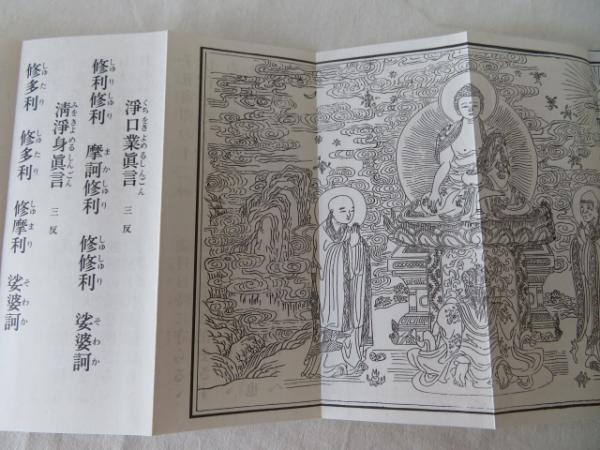 淨口業眞言 三反
くちをきよめるしんごん
修利修利 摩訶修利 修修利 娑婆訶
しゅりしゅり まかしゅり しゅしゅり そわか
淸淨身眞言 三反
みをきよめるしんごん
修多利 修多利 修摩利 娑婆訶
しゅたり しゅたり しゅまり そわか